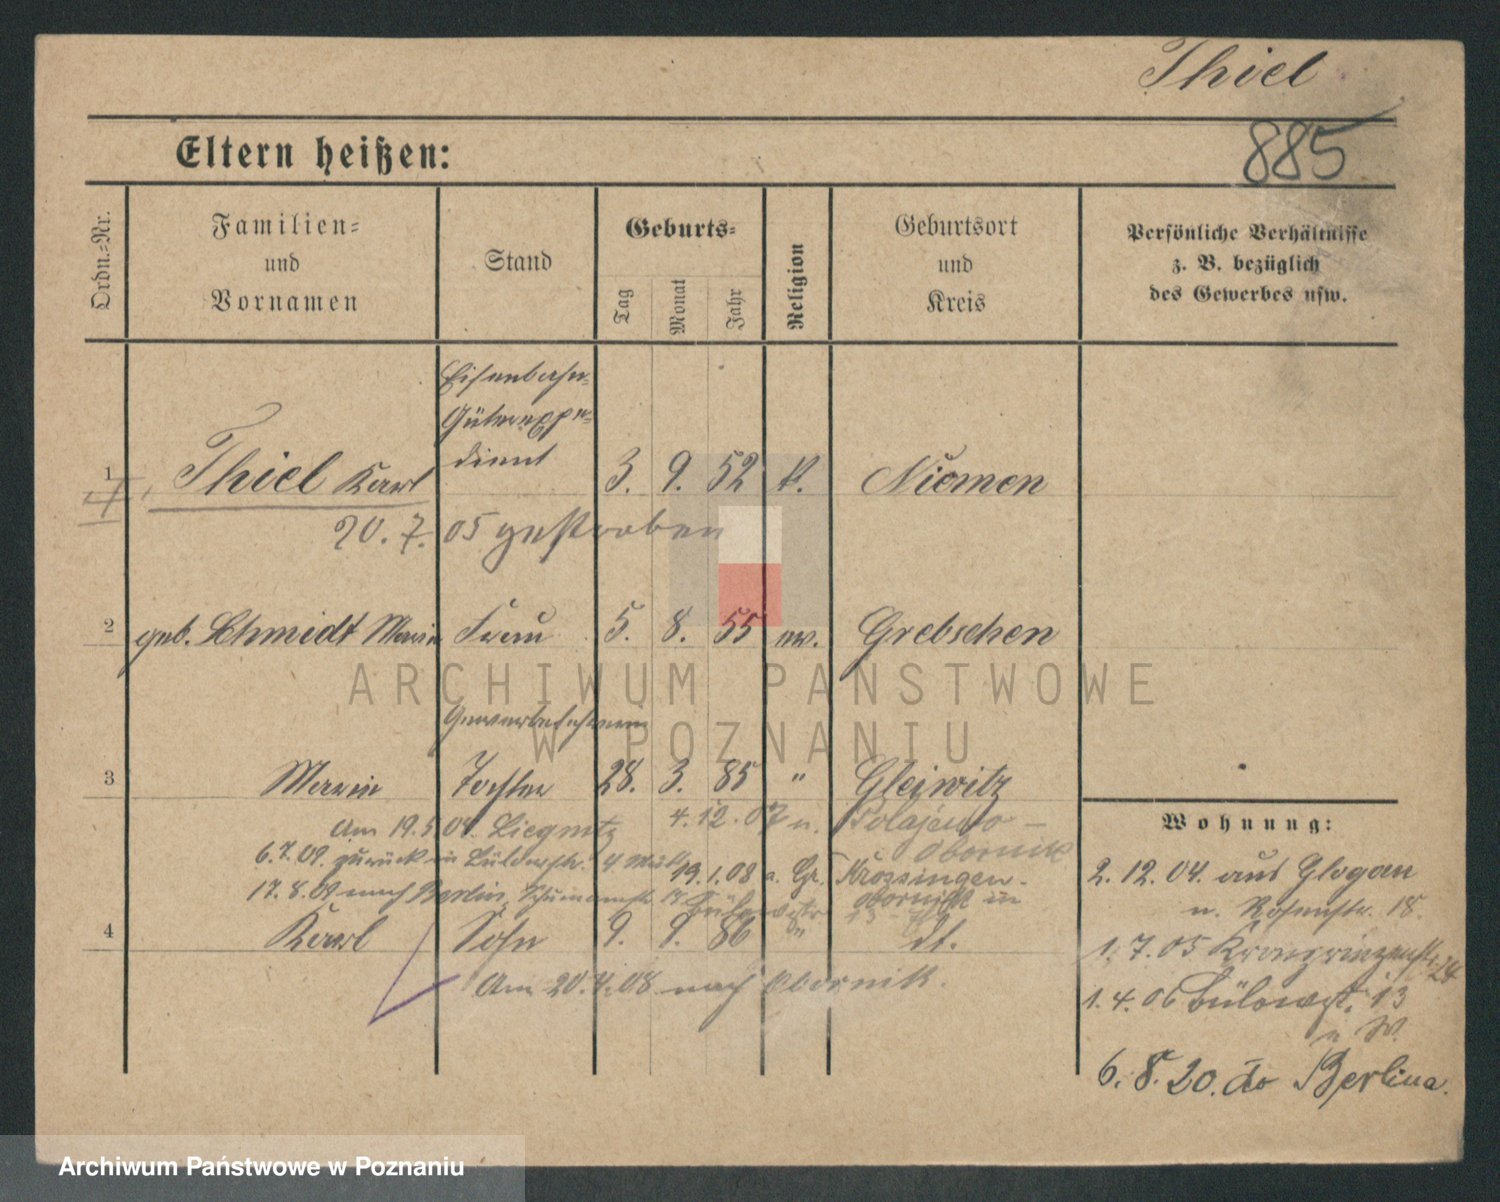 Thiel
885
Eltern heißen:
Ordn.=Nr.
Familien=
und
Vornamen
Stand
Geburts=
Tag
Monat
Jahr
Religion
Geburtsort
und
Kreis
Persönliche Verhältnisse
z. B. bezüglich
des Gewerbes usw.
Eisenbahn-
Güterexpe-
dient
1 Thiel Karl 3. 9. 52 k. Niemen
20. 7. 05 gestorben
2 geb. Schmidt Marie Frau 5. 8. 55 ev. Grebschen
3 Marie Tochter 28. 3. 85 " Gleiwitz
Am 19.5.04. Liegnitz 4.12.07 n. Polajewo -
Obornik
6.7.09. zurück 19.1.08 a. Gr. Krozsingen-
17.8.09 nach Berlin, Obornik in
4 Karl Sohn 9. 9. 86 " dt.
Am 20.4.08 nach Obornik.
Wohnung:
2.12.04. aus Glogau
n. Rosenstr. 18.
1.7.05 Kronprinzenstr. 
1.4.06 Bülowst. 13
n W.
6.8.20. do Berlina.
ARCHIWUM PAŃSTWOWE
W POZNANIU
Archiwum Państwowe w Poznaniu